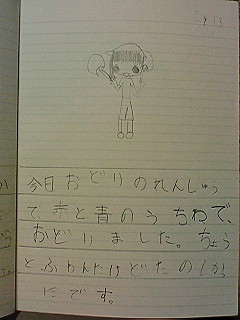 9 13
今日おどりのれんしゅう
で、赤と青のうちわで、
おどりました。ちょっ
とふあんだけどたのしかっ
たです。